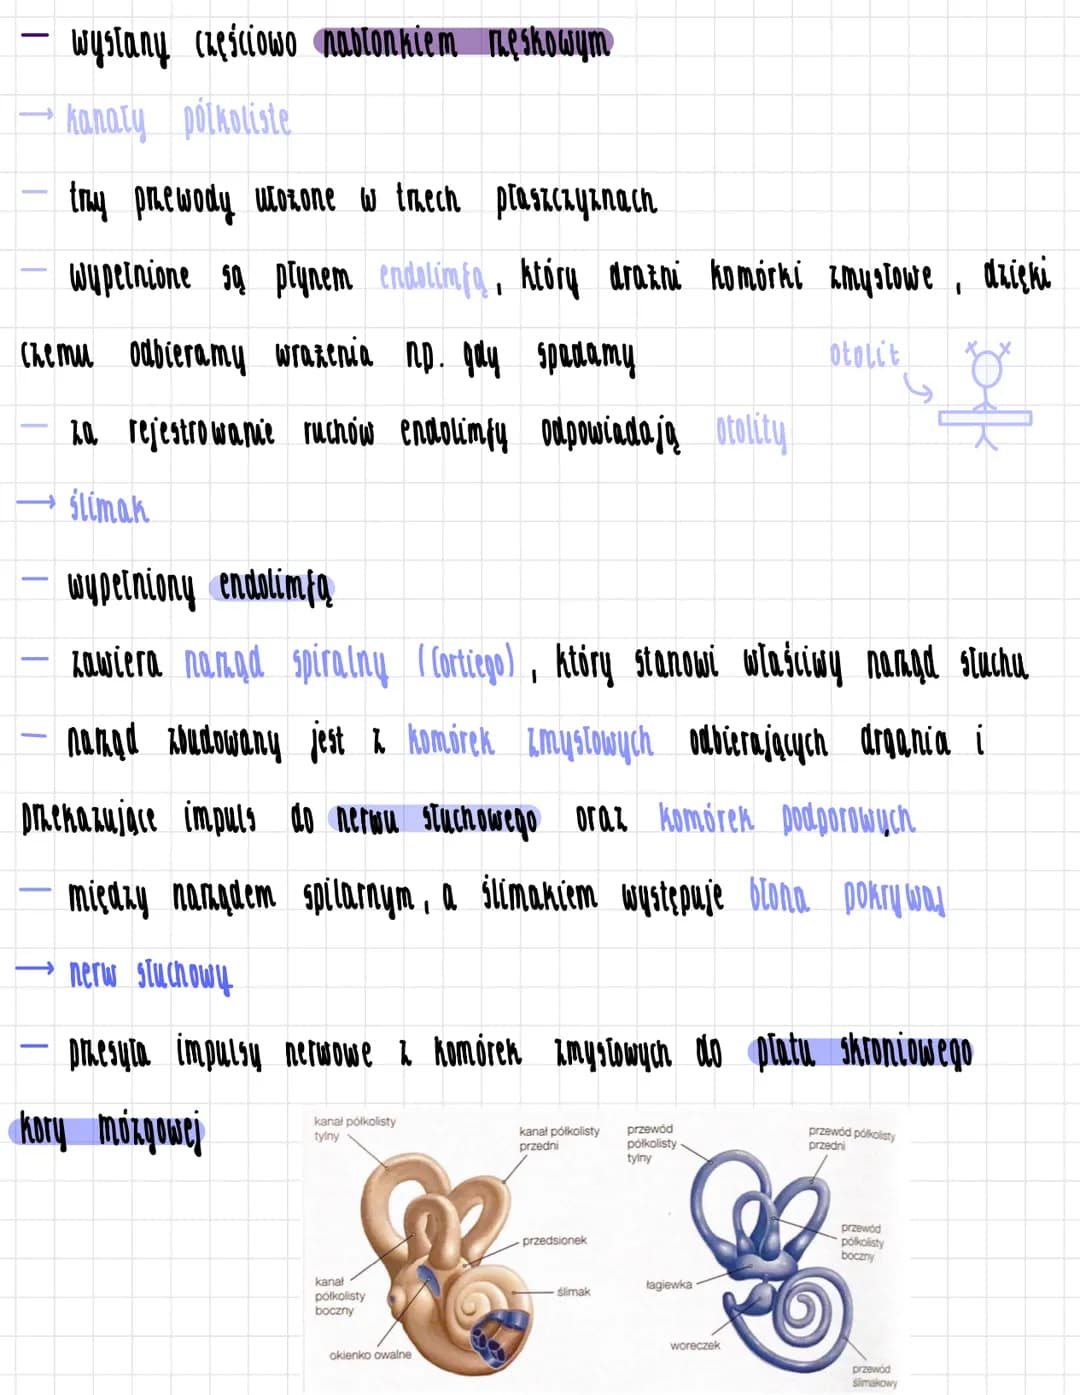 — wysłany częściowo nabłonkiem rzęskowym
→ kanały półkoliste
— trzy przewody ułożone w trzech płaszczyznach
— wypełnione są płynem endolimfą, który drażni komórki zmysłowe, dzięki
czemu odbieramy wrażenia np. gdy spadamy
otolit
— za rejestrowanie ruchów endolimfy odpowiadają otolity
→ ślimak
— wypełniony endolimfą
— zawiera narząd spiralny (Cortiego), który stanowi właściwy narząd słuchu
— narząd zbudowany jest z komórek zmysłowych odbierających drgania i
przekazujące impuls do nerwu słuchowego oraz komórek podporowych
— między narządem spilarnym, a ślimakiem występuje błona pokrywaj
→ nerw słuchowy
— przesyła impulsy nerwowe z komórek zmysłowych do płatu skroniowego
kory mózgowej
kanał półkolisty
tylny
kanał półkolisty
przedni
przedsionek
ślimak
kanał
półkolisty
boczny
okienko owalne
przewód
półkolisty
tylny
przewód półkolisty
przedni
przewód
półkolisty
boczny
łagiewka
woreczek
przewód
ślimakowy